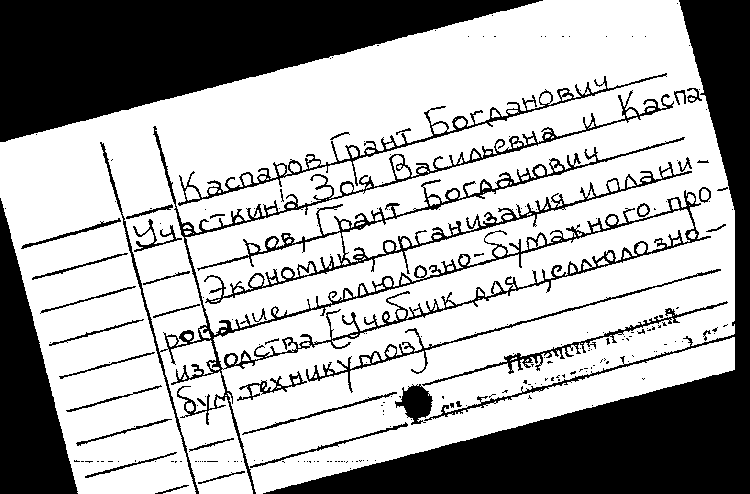 Каспаров, Грант Богданович
Участкина, Зоя Васильевна и Каспа-
ров, Грант Богданович
Экономика, организация и плани-
рование целлюлозно-бумажного про-
изводства [Учебник для целлюлозно-
бум. техникумов].
Перечень